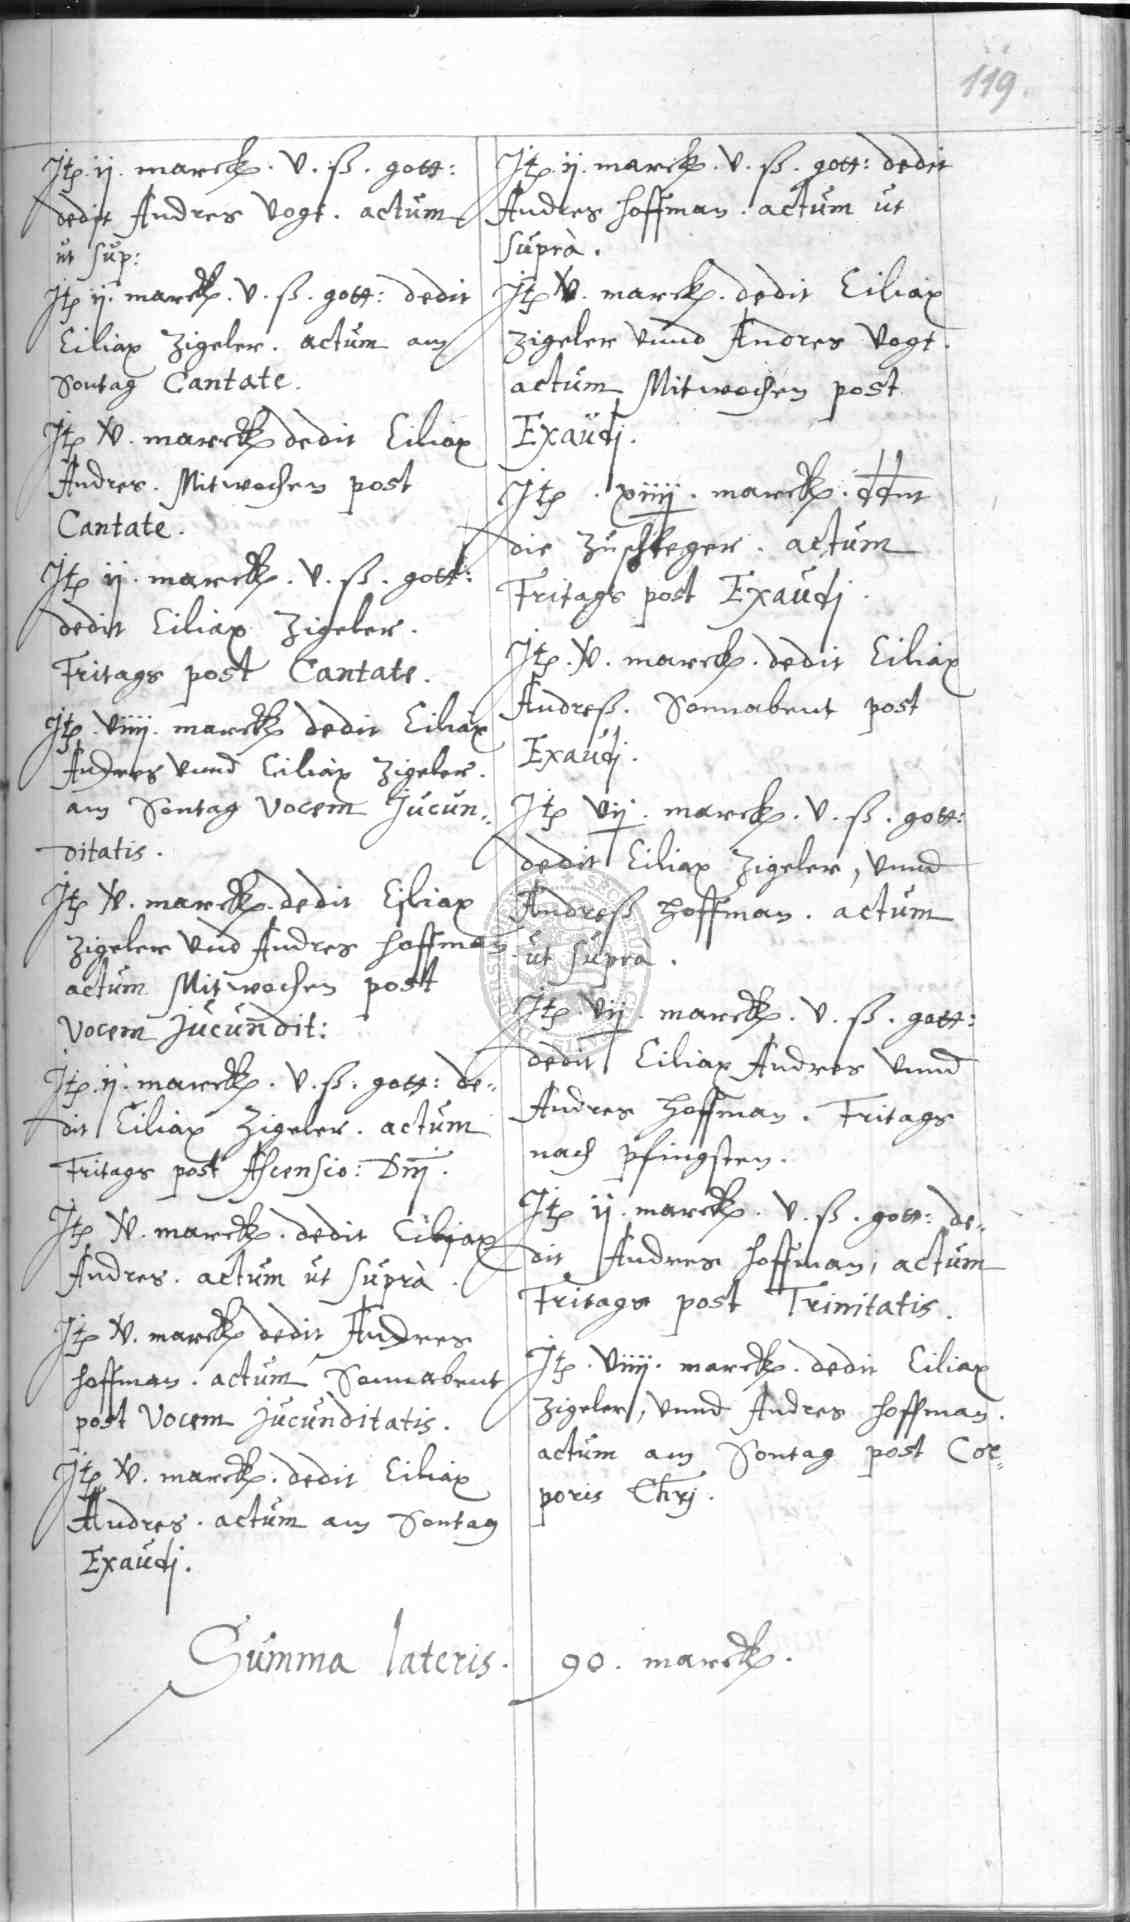 119.
Jtem ij. marck. v. ß. gott:
dedit Andres Vogt. actum
ut sup:
Jtem ij. marck. v. ß. gott: dedit
Ciliax Zigeler. actum am
Sontag Cantate.
Jtem v. marck dedit Ciliax
Andres. Mitwochen post
Cantate.
Jtem ij. marck. v. ß. gott:
dedit Ciliax Zigeler.
Fritags post Cantate.
Jtem viiij. marck dedit Ciliax
Andres vnnd Ciliax Zigeler.
am Sontag Vocem Jucun„
ditatis.
Jtem v. marck. dedit Ciliax
Zigeler vnd Andres Hoffman
actum Mitwochen post
Vocem Jucundit:
Jtem ij. marck. v. ß. gott: de„
dit Ciliax Zigeler. actum
Fritags post Ascensio: Dnj.
Jtem v. marck. dedit Ciliax
Andres. actum ut suprà.
Jtem v. marck dedit Andres
Hoffman. actum Sonnabent
post Vocem Jucunditatis.
Jtem v. marck. dedit Ciliax
Andres. actum am Sontag
Exaudj.
Jtem ij. marck. v. ß. gott: dedit
Andres Hoffman. actum ut
suprà.
Jtem v. marck. dedit Ciliax
Zigeler vnnd Andres Vogt.
actum Mitwochen post
Exaudj.
Jtem. xiiij. marck. ddnt
die Zuschleger. actum
Fritags post Exaudj.
Jtem. v. marck. dedit Ciliax
Andreß. Sonnabent post
Exaudj.
Jtem vij. marck. v. ß. gott:
dedit Ciliax Zigeler, vnnd
Andreß Hoffman. actum
ut suprà.
Jtem. vij. marck. v. ß. gott:
dedit Ciliax Andres vnnd
Andres Hoffman. Fritags
nach Pfingsten.
Jtem ij. marck. v. ß. gott: de„
dit Andres Hoffman, actum
Fritags post Trinitatis.
Jtem. viiij. marck. dedit Ciliax
Zigeler, vnnd Andres Hoffman.
actum am Sontag post Cor„
poris Chrj.
Summa lateris. 90. marck.